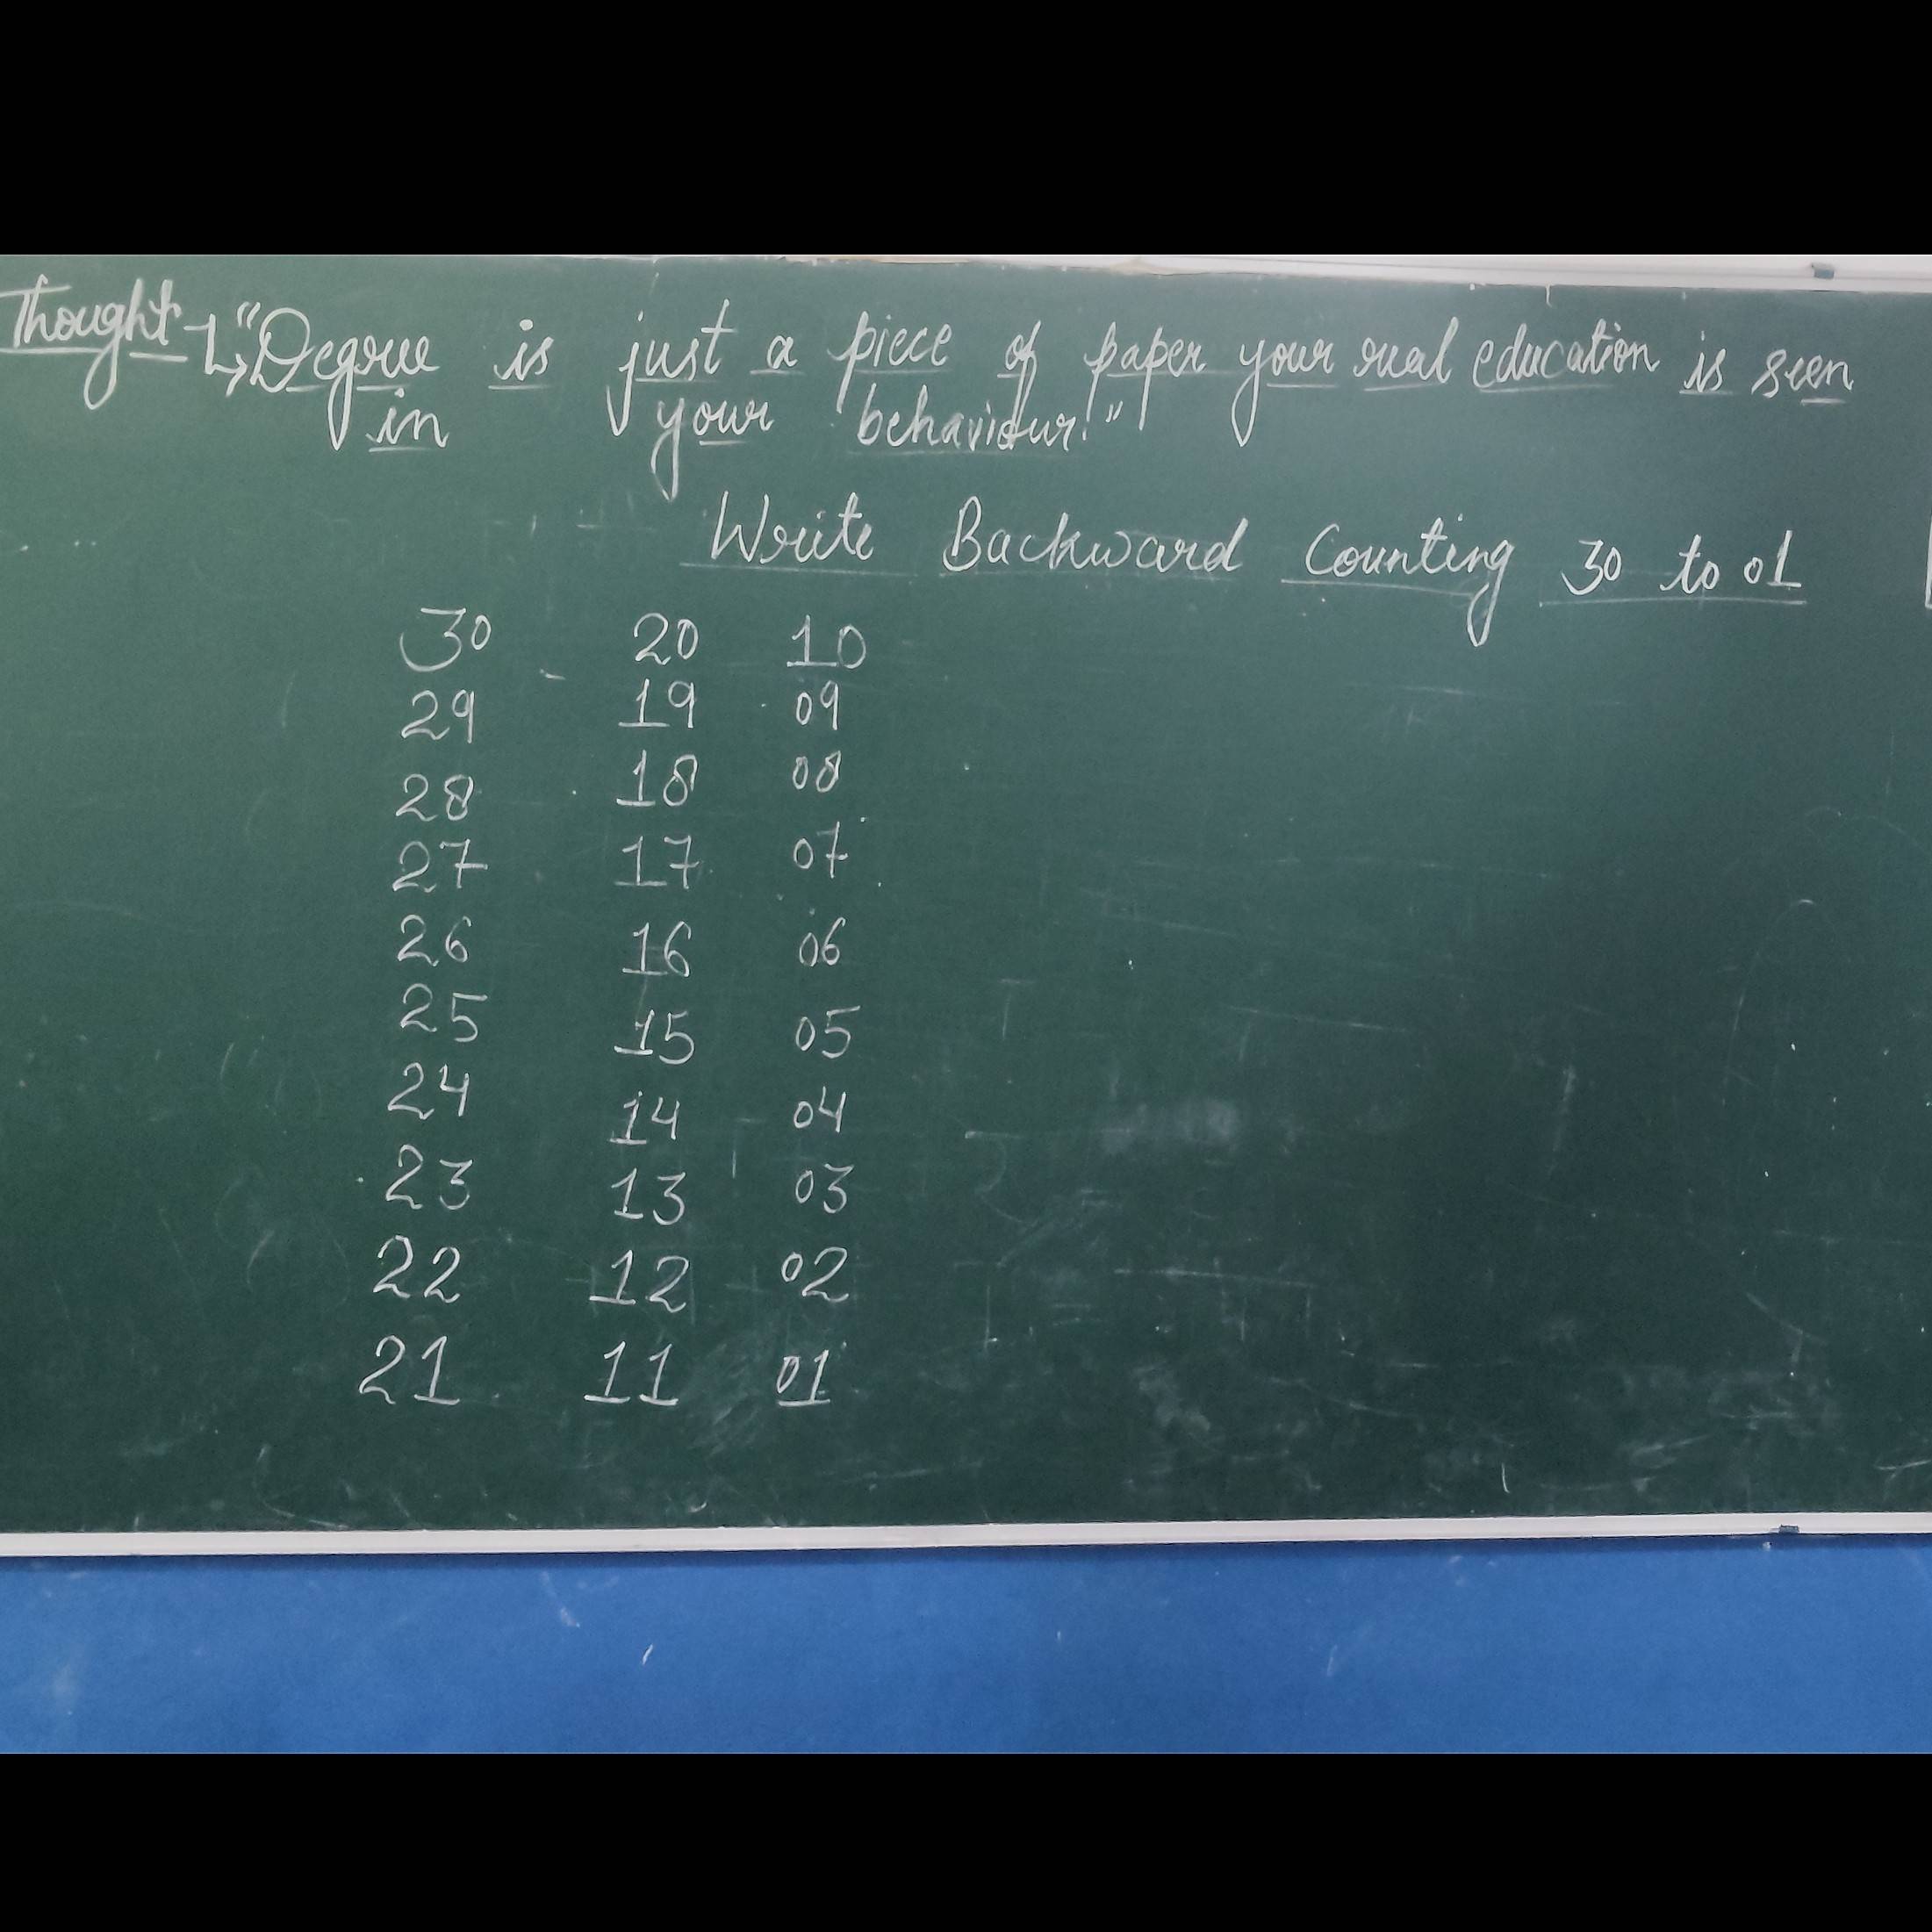 Thought ↳ "Degree is just a piece of paper your real education is seen
in your behaviour."
Write Backward Counting 30 to 01
30 20 10
29 19 09
28 18 08
27 17 07
26 16 06
25 15 05
24 14 04
23 13 03
22 12 02
21 11 01